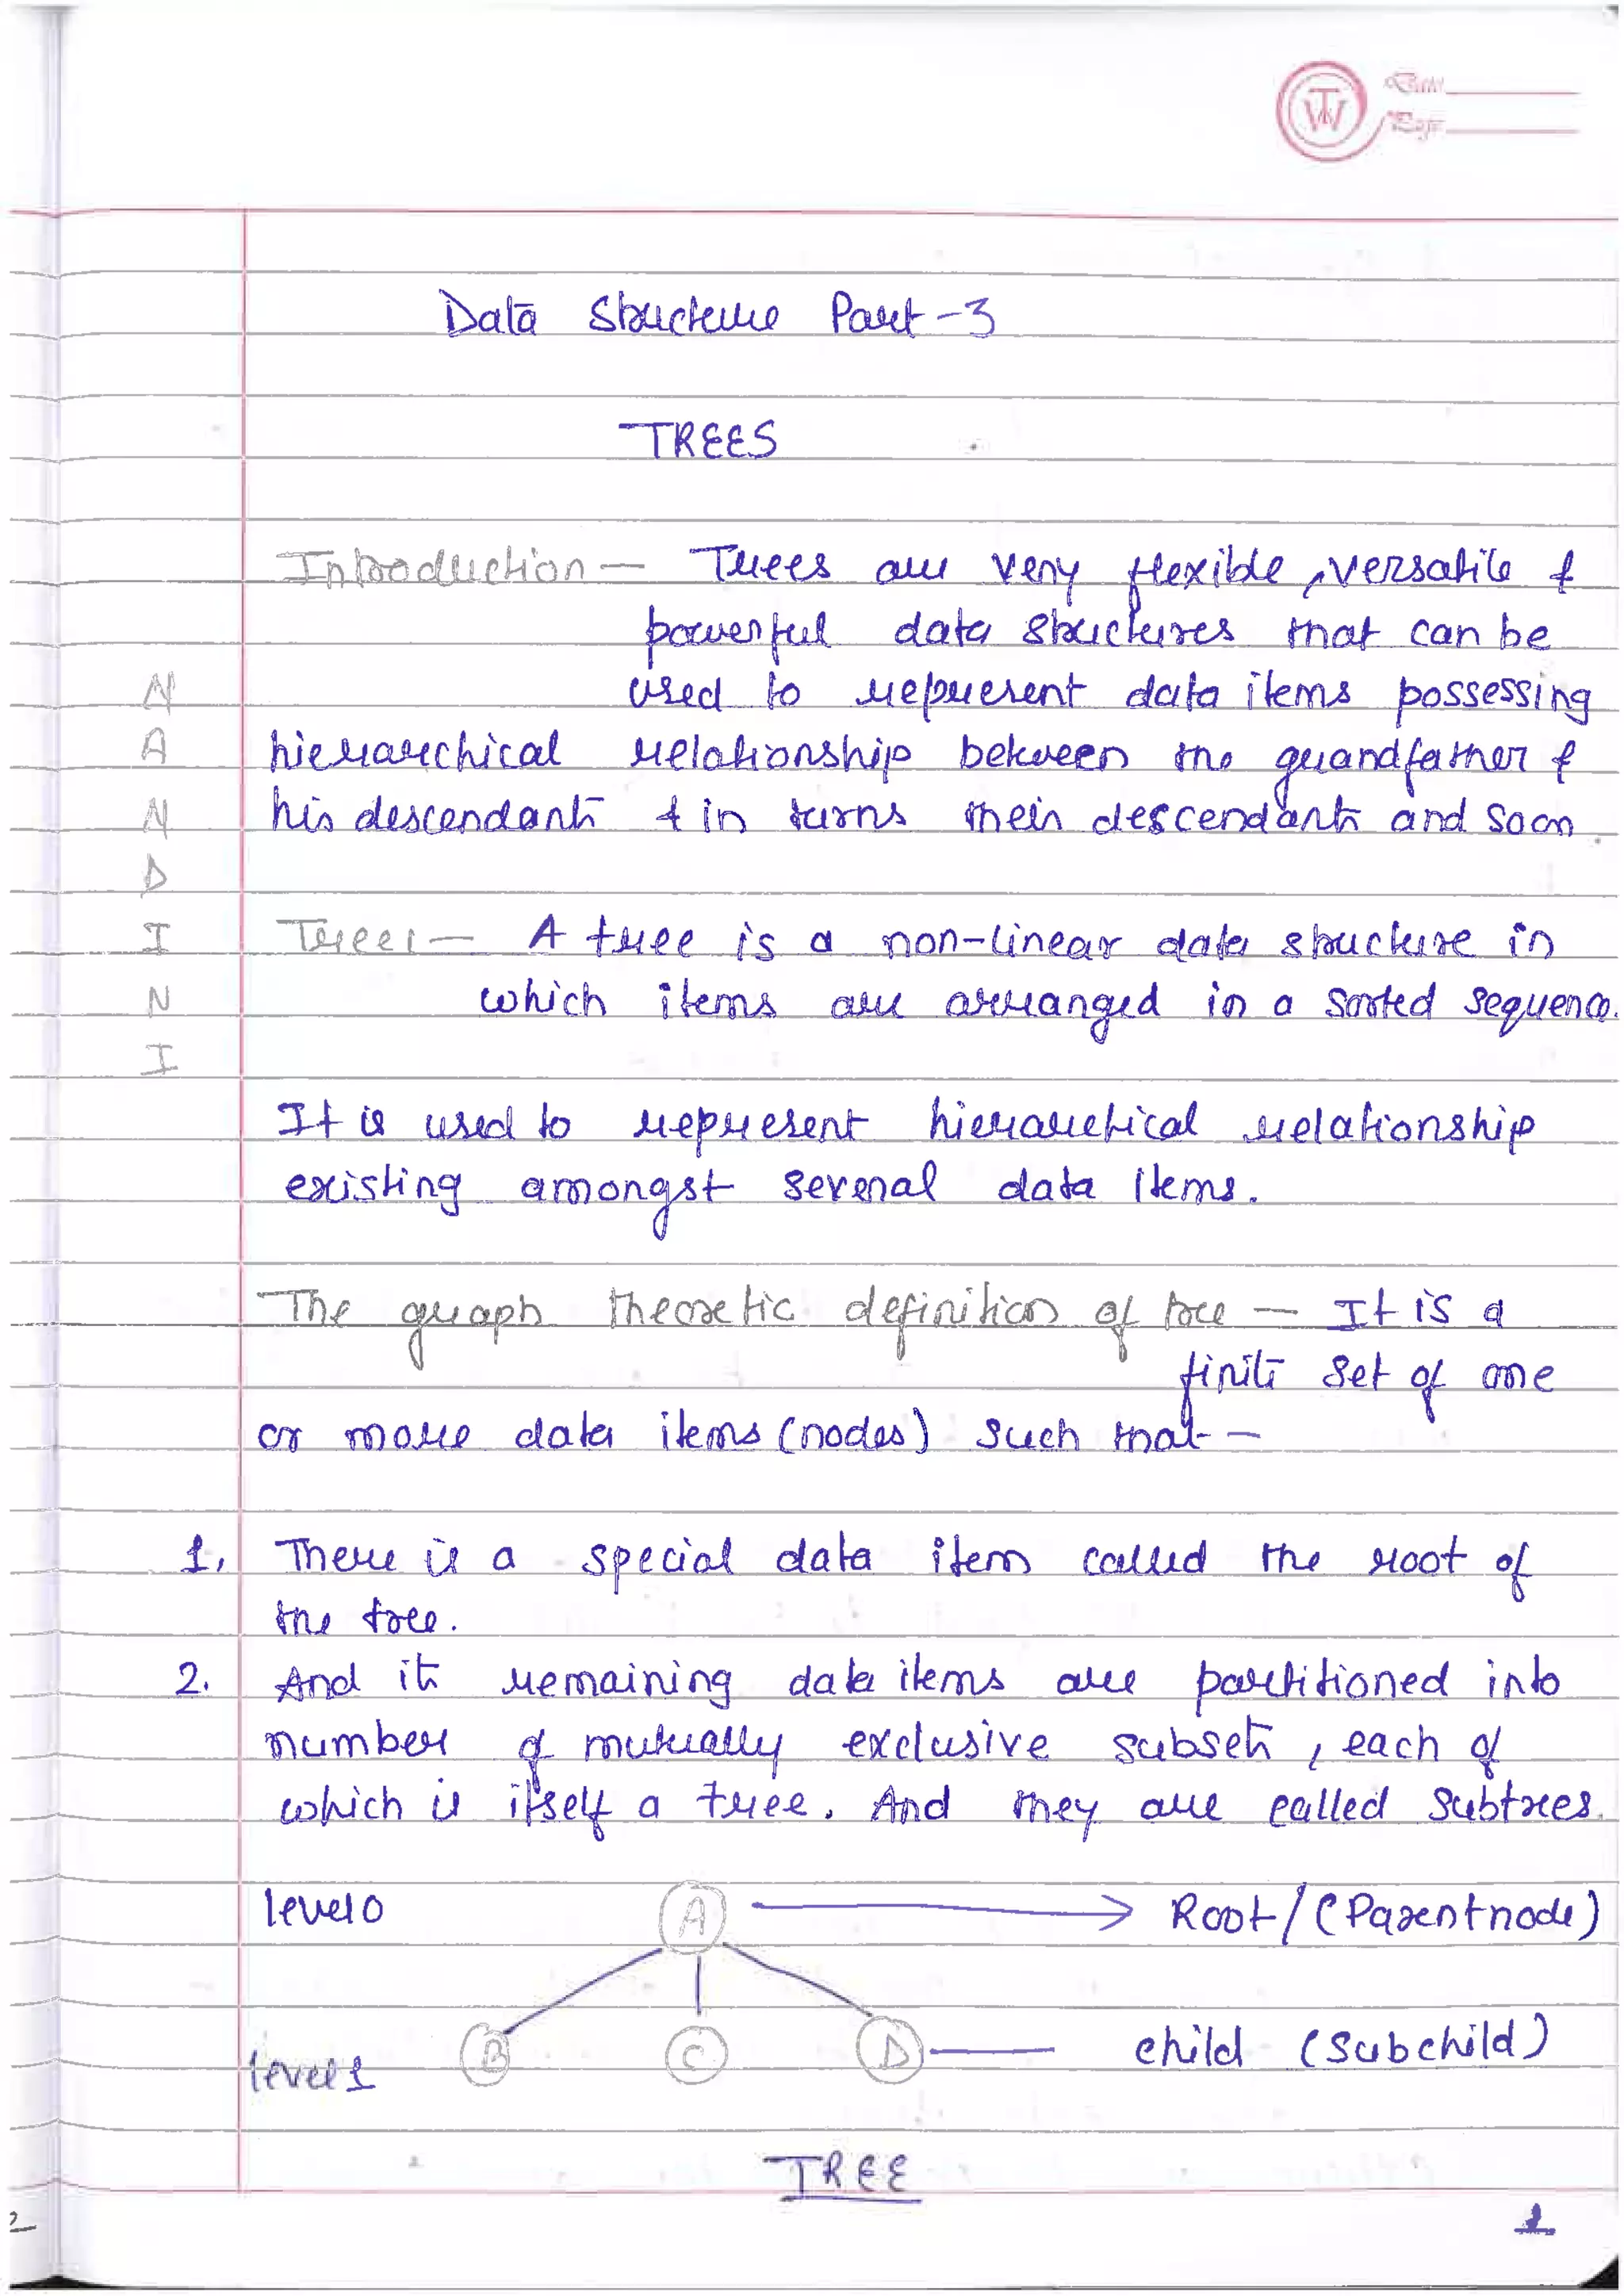 TW
Date
Page
Data Structure Part-3
TREES
Introduction — Trees are very flexible, versatile &
powerful data structures that can be
used to represent data items possessing
hierarchical relationship between the grandfather &
his descendants & in turns their descendants and soon.
Trees — A tree is a non-linear data structure in
which items are arranged in a sorted sequence.
It is used to represent hierarchical relationship
existing amongst several data items.
The graph theoretic definition of tree — It is a
finite set of one
or more data items (nodes) such that —
1. There is a special data item called the root of
the tree.
2. And its remaining data items are partitioned into
number of mutually exclusive subsets, each of
which is itself a tree. And they are called subtrees.
level 0 A Root/(Parent node)
level 1 B C D child (Subchild)
TREE
1
2
N
A
N
D
I
N
I